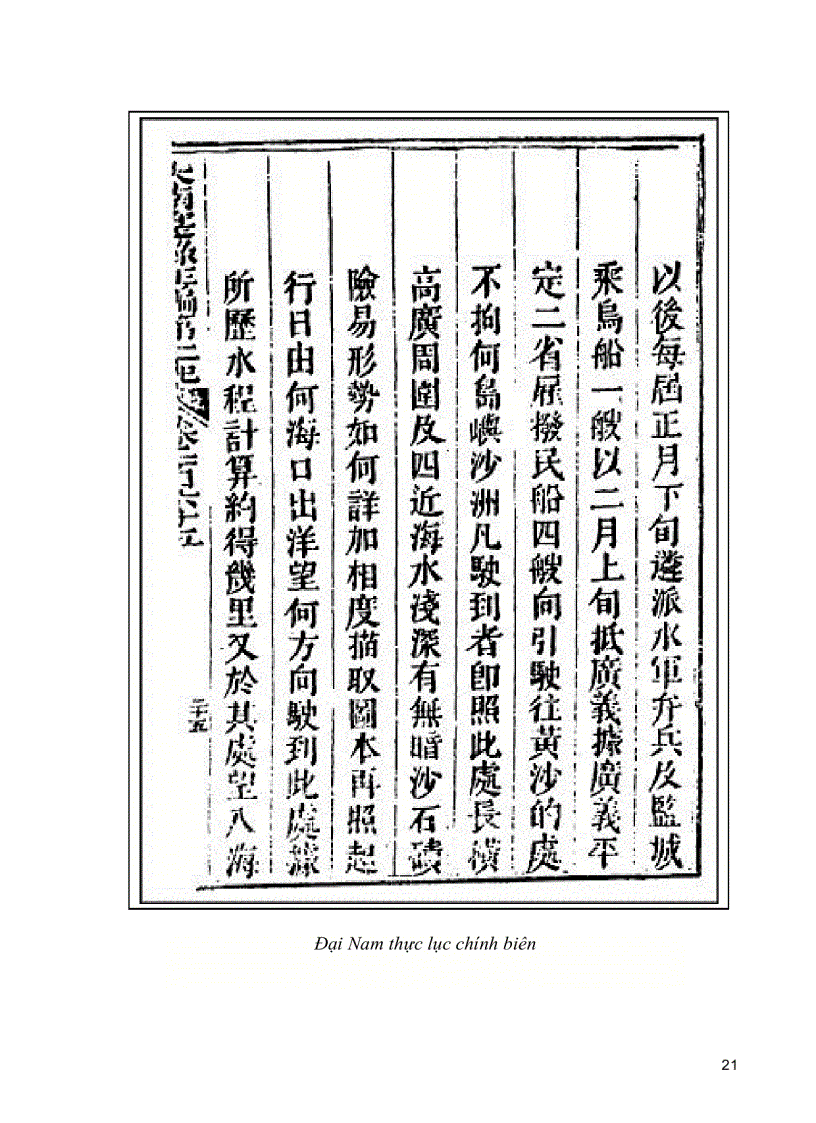 以後每屆正月下旬遴派水軍弁兵及監城
乘烏船一艘以二月上旬抵廣義據廣義平
定二省雇撥民船四艘向引駛往黃沙的處
不拘何島嶼沙洲凡駛到者即照此處長橫
高廣周圍及四近海水淺深有無暗沙石磧
險易形勢如何詳加相度描取圖本再照起
行日由何海口出洋望何方向駛到此處據
所歷水程計算約得幾里又於其處望入海
大南寔錄正編第二紀 卷一百六十五
二十五
Đại Nam thực lục chính biên
21